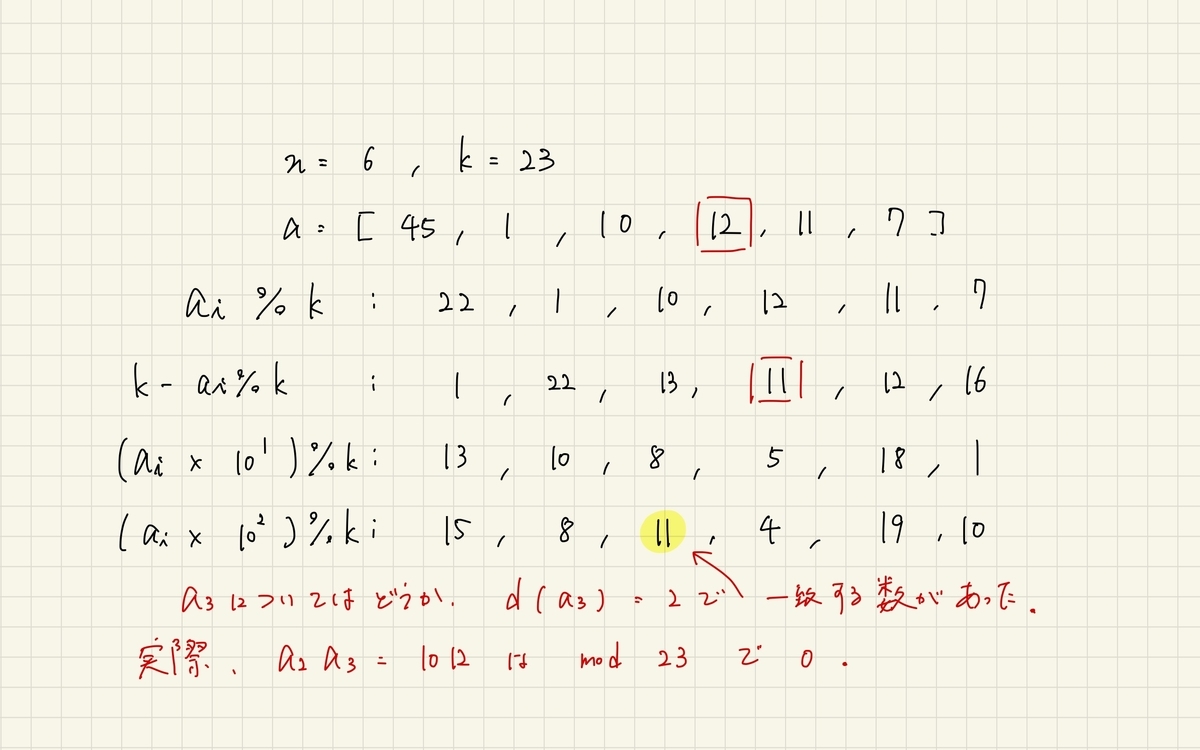 n = 6 , k = 23
a = [ 45 , 1 , 10 , 12 , 11 , 7 ]
ai % k : 22 , 1 , 10 , 12 , 11 , 7
k - ai % k : 1 , 22 , 13 , 11 , 12 , 16
(ai × 10¹) % k : 13 , 10 , 8 , 5 , 18 , 1
(ai × 10²) % k : 15 , 8 , 11 , 4 , 19 , 10
a₃ についてはどうか. d(a₃) = 2 で 一致する数があった.
実際、 a₂ a₃ = 1012 は mod 23 で 0 .